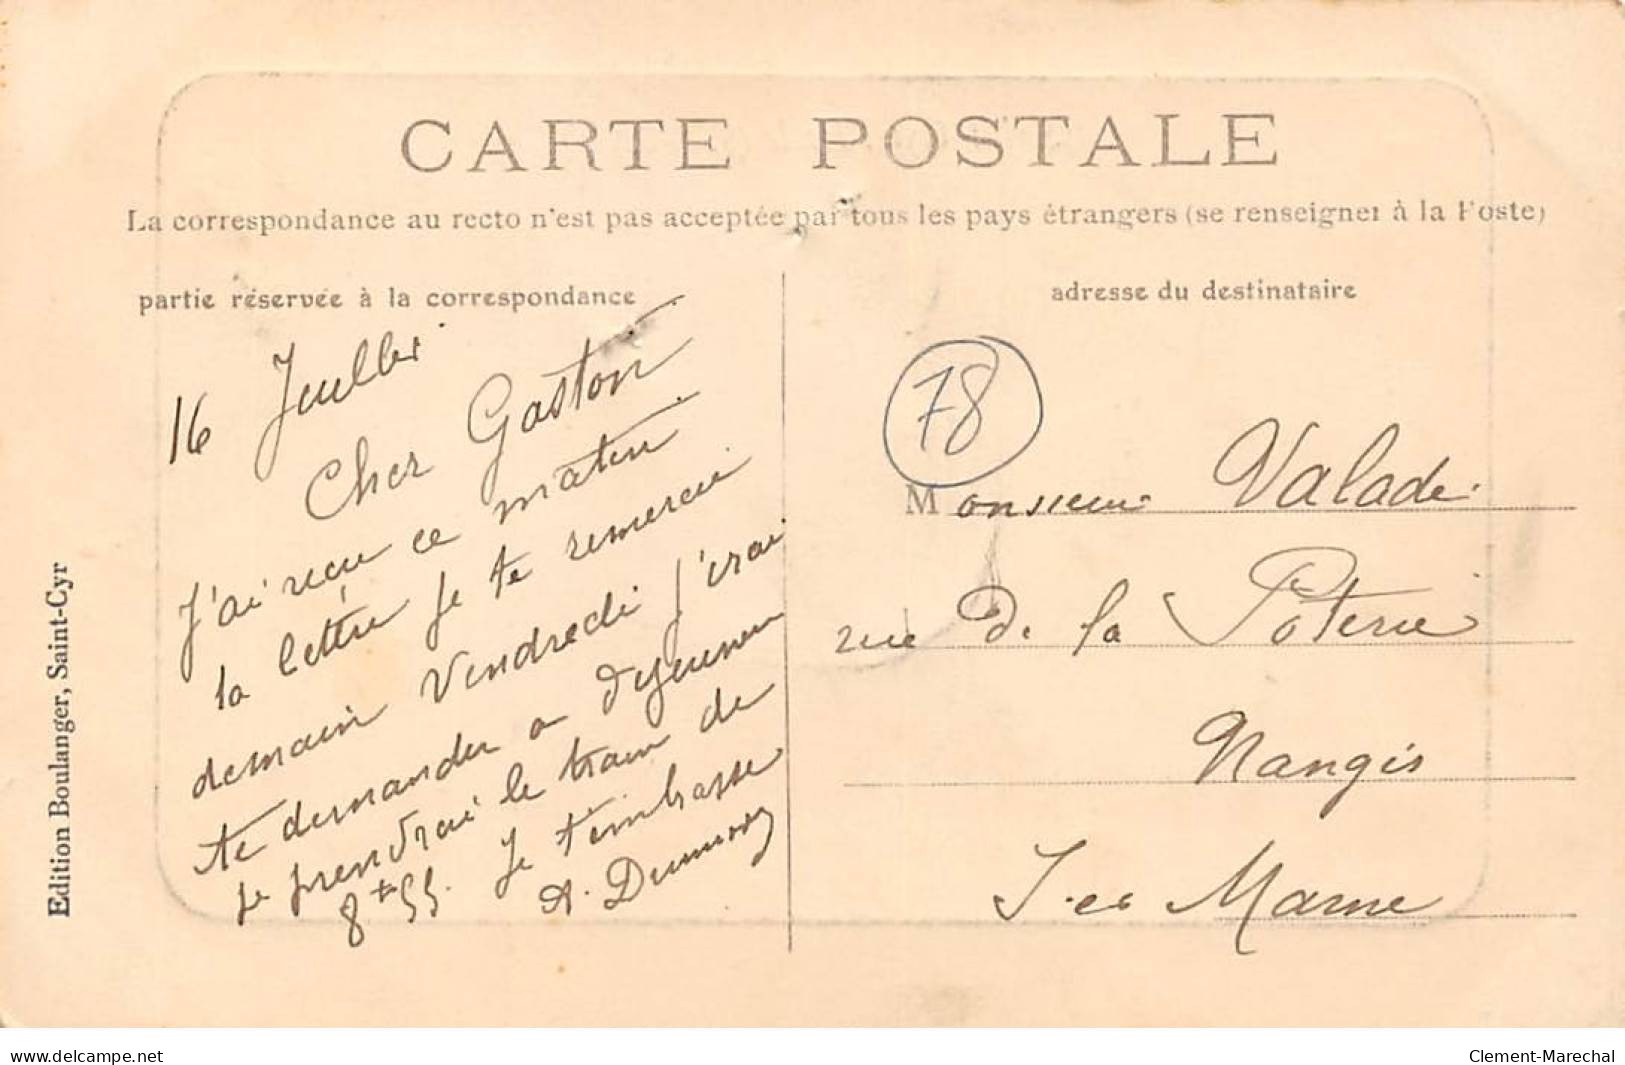 CARTE POSTALE
La correspondance au recto n'est pas acceptée par tous les pays étrangers (se renseigner à la Poste)
partie réservée à la correspondance
16 Jeulle
Cher Gaston
J'ai recu ce matin
ta lettre je te remercie
demain Vendredi j'irai
te demander a dejeuner
je prendrai le train de
8h 55. Je t'embrasse
A. Dumur
adresse du destinataire
78
Monsieur Valade
rue de la Poterie
Nangis
S. et Marne
Edition Boulanger, Saint-Cyr
www.delcampe.net
Clement-Marechal